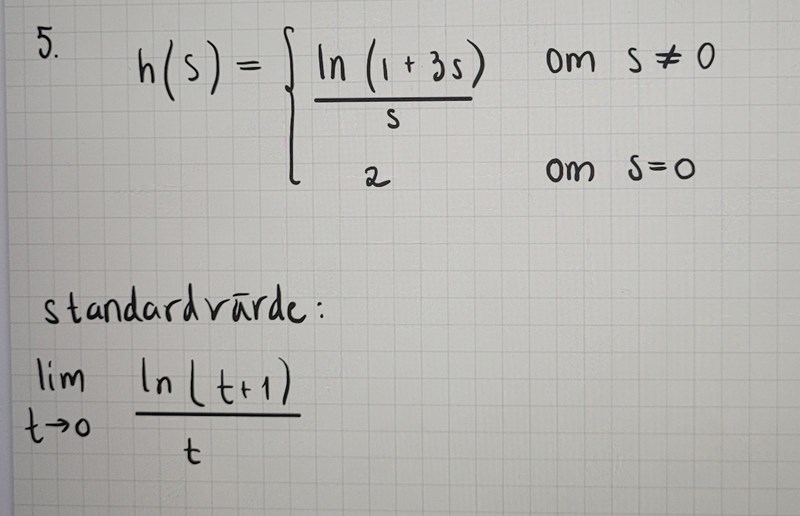 5. h(s) = { ln(1+3s) / s om s ≠ 0
2 om s=0
standardvärde:
lim t→0 ln(t+1) / t